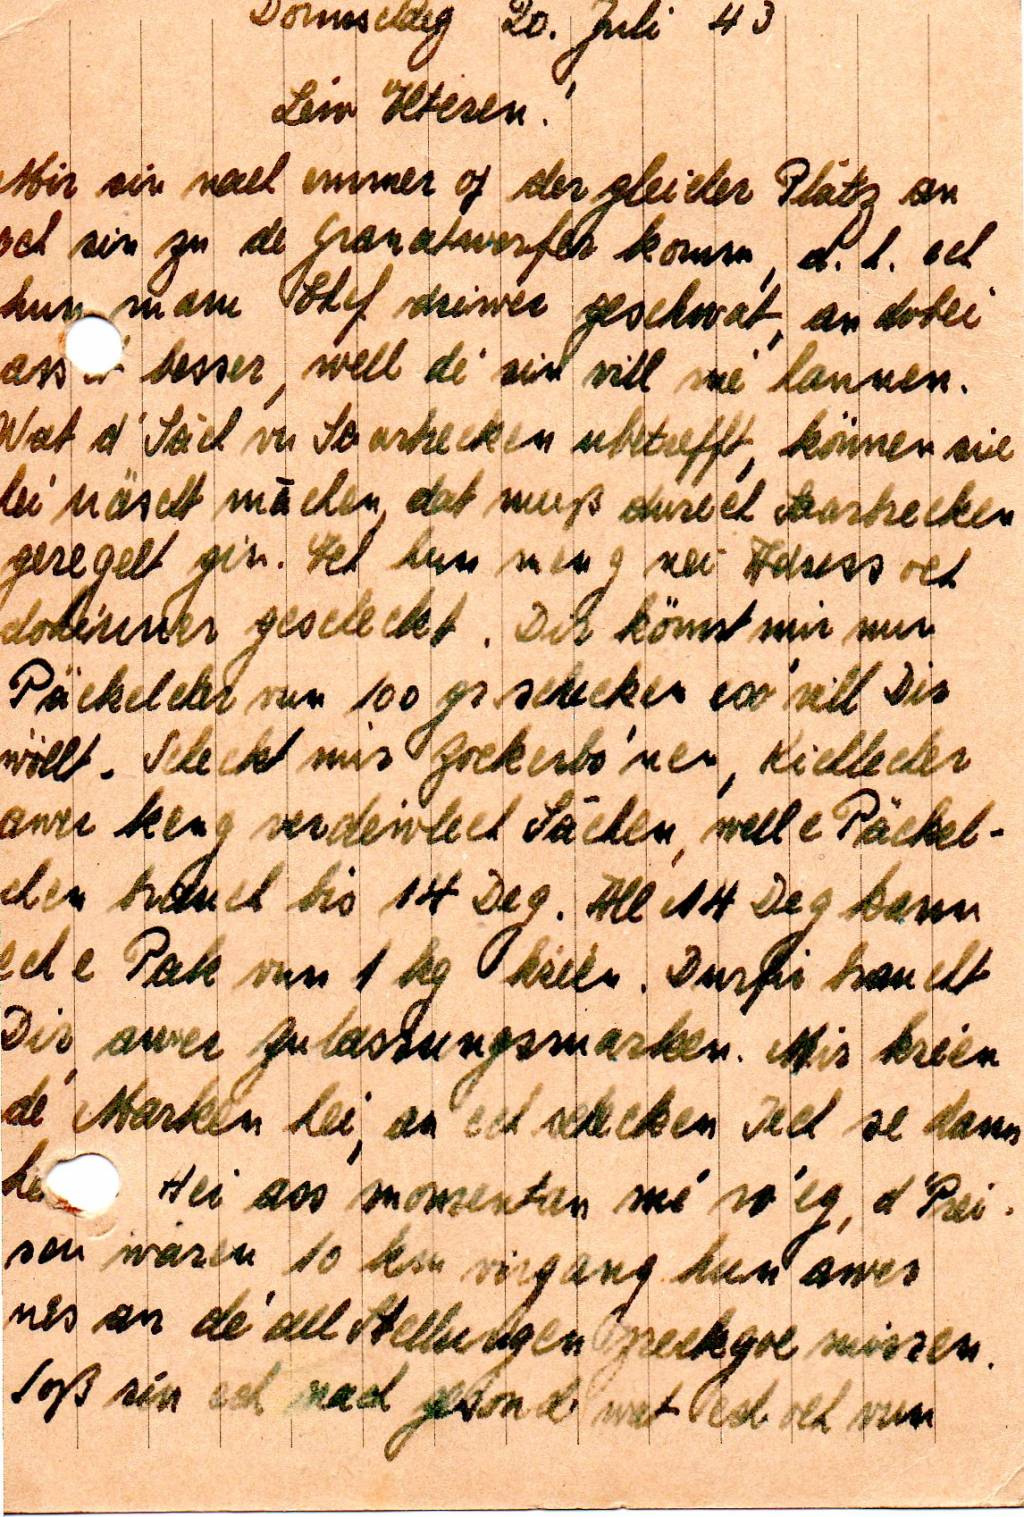 Donnseldeg 20. Juli 43
Léiw Elteren!
Mir sin nach ëmmer of der gleicher Plätz an
ech sin zu de Granatwerfer komm, d. h. ech
hun mam Chef driwer geschwat, an dobei
ass et besser, well dé sin vill mé hannen.
Wat d'Säch vu Saarbrecken ubetrefft, können sie
hei näscht mächen, dat muß durech Saarbrecken
geregelt gin. Ech hun meng nei Adress och
dohinner gescheckt. Dir könnt mir nur
Päckelcher vun 100 gr schecken esó vill Dir
wöllt. Scheckt mir Zockerbónen, Kichlecher
awer keng verdéiwlech Sächen, well e Päckel-
chen brauch bis 14 Deg. All 14 Deg kann
ech e Pak vun 1 kg kréien. Durfir braucht
Dir awer Zulassungsmarken. Mir kréien
dé Marken hei, an ech schecken Iech se dann
Hei ass momentan mé róeg, d'Prei-
sen wären 10 km virgang hun awer
nës an dé'all Stellungen zreckgoe missen.
Soß sin ech nach gesond wat ech och vun